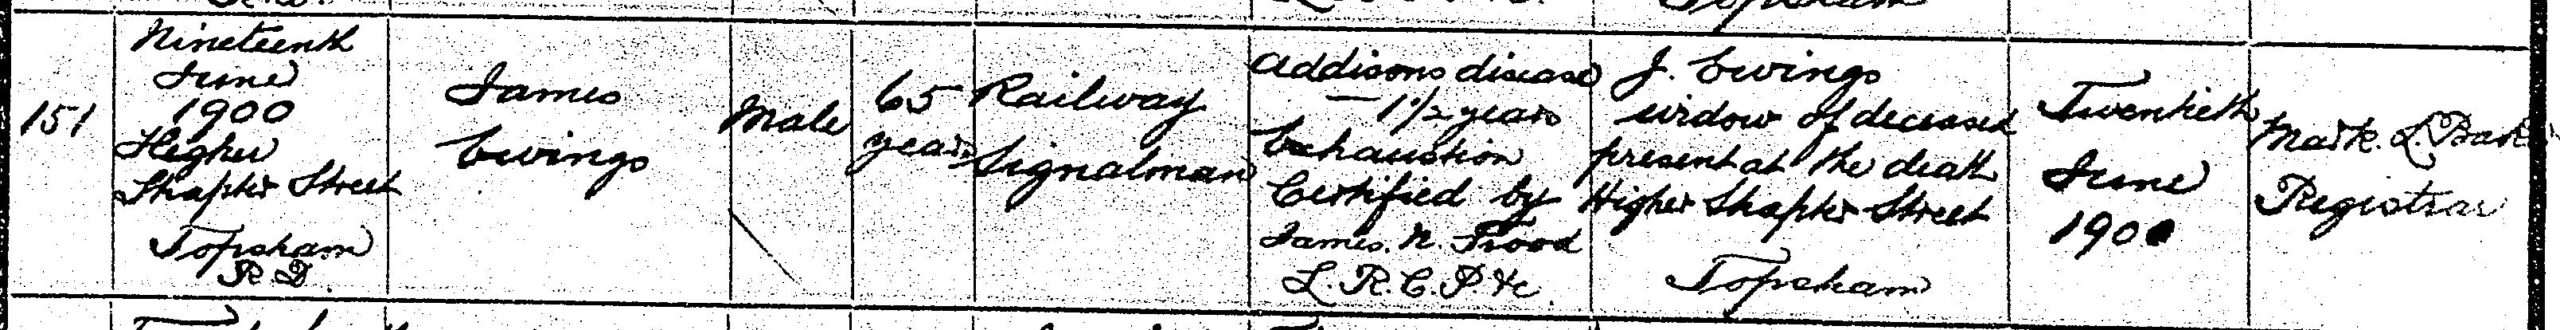 151
Nineteenth
June
1900
Higher
Shapter Street
Topsham
R D
James
Ewings
Male
65
years
Railway
Signalman
Addisons disease
1 1/2 years
Exhaustion
Certified by
James. N. Frood
L. R. C. P. &c.
J. Ewings
widow of deceased
present at the death
Higher Shapter Street
Topsham
Twentieth
June
1900
Mark. L. Baker
Registrar
Topsham